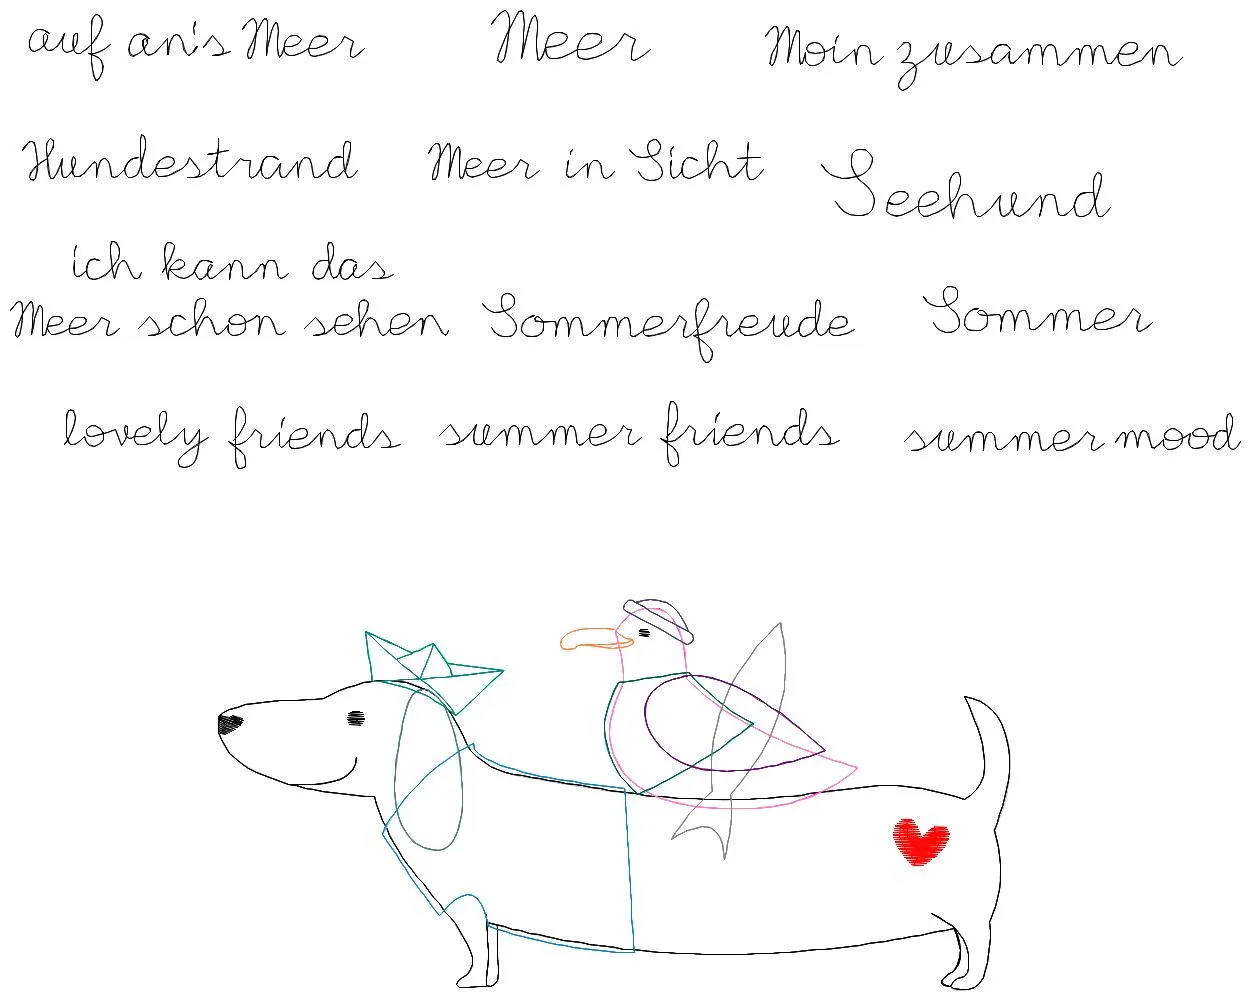 auf an's Meer
Meer
Moin zusammen
Hundestrand
Meer in Sicht
Seehund
ich kann das
Meer schon sehen
Sommerfreude
Sommer
lovely friends
summer friends
summer mood